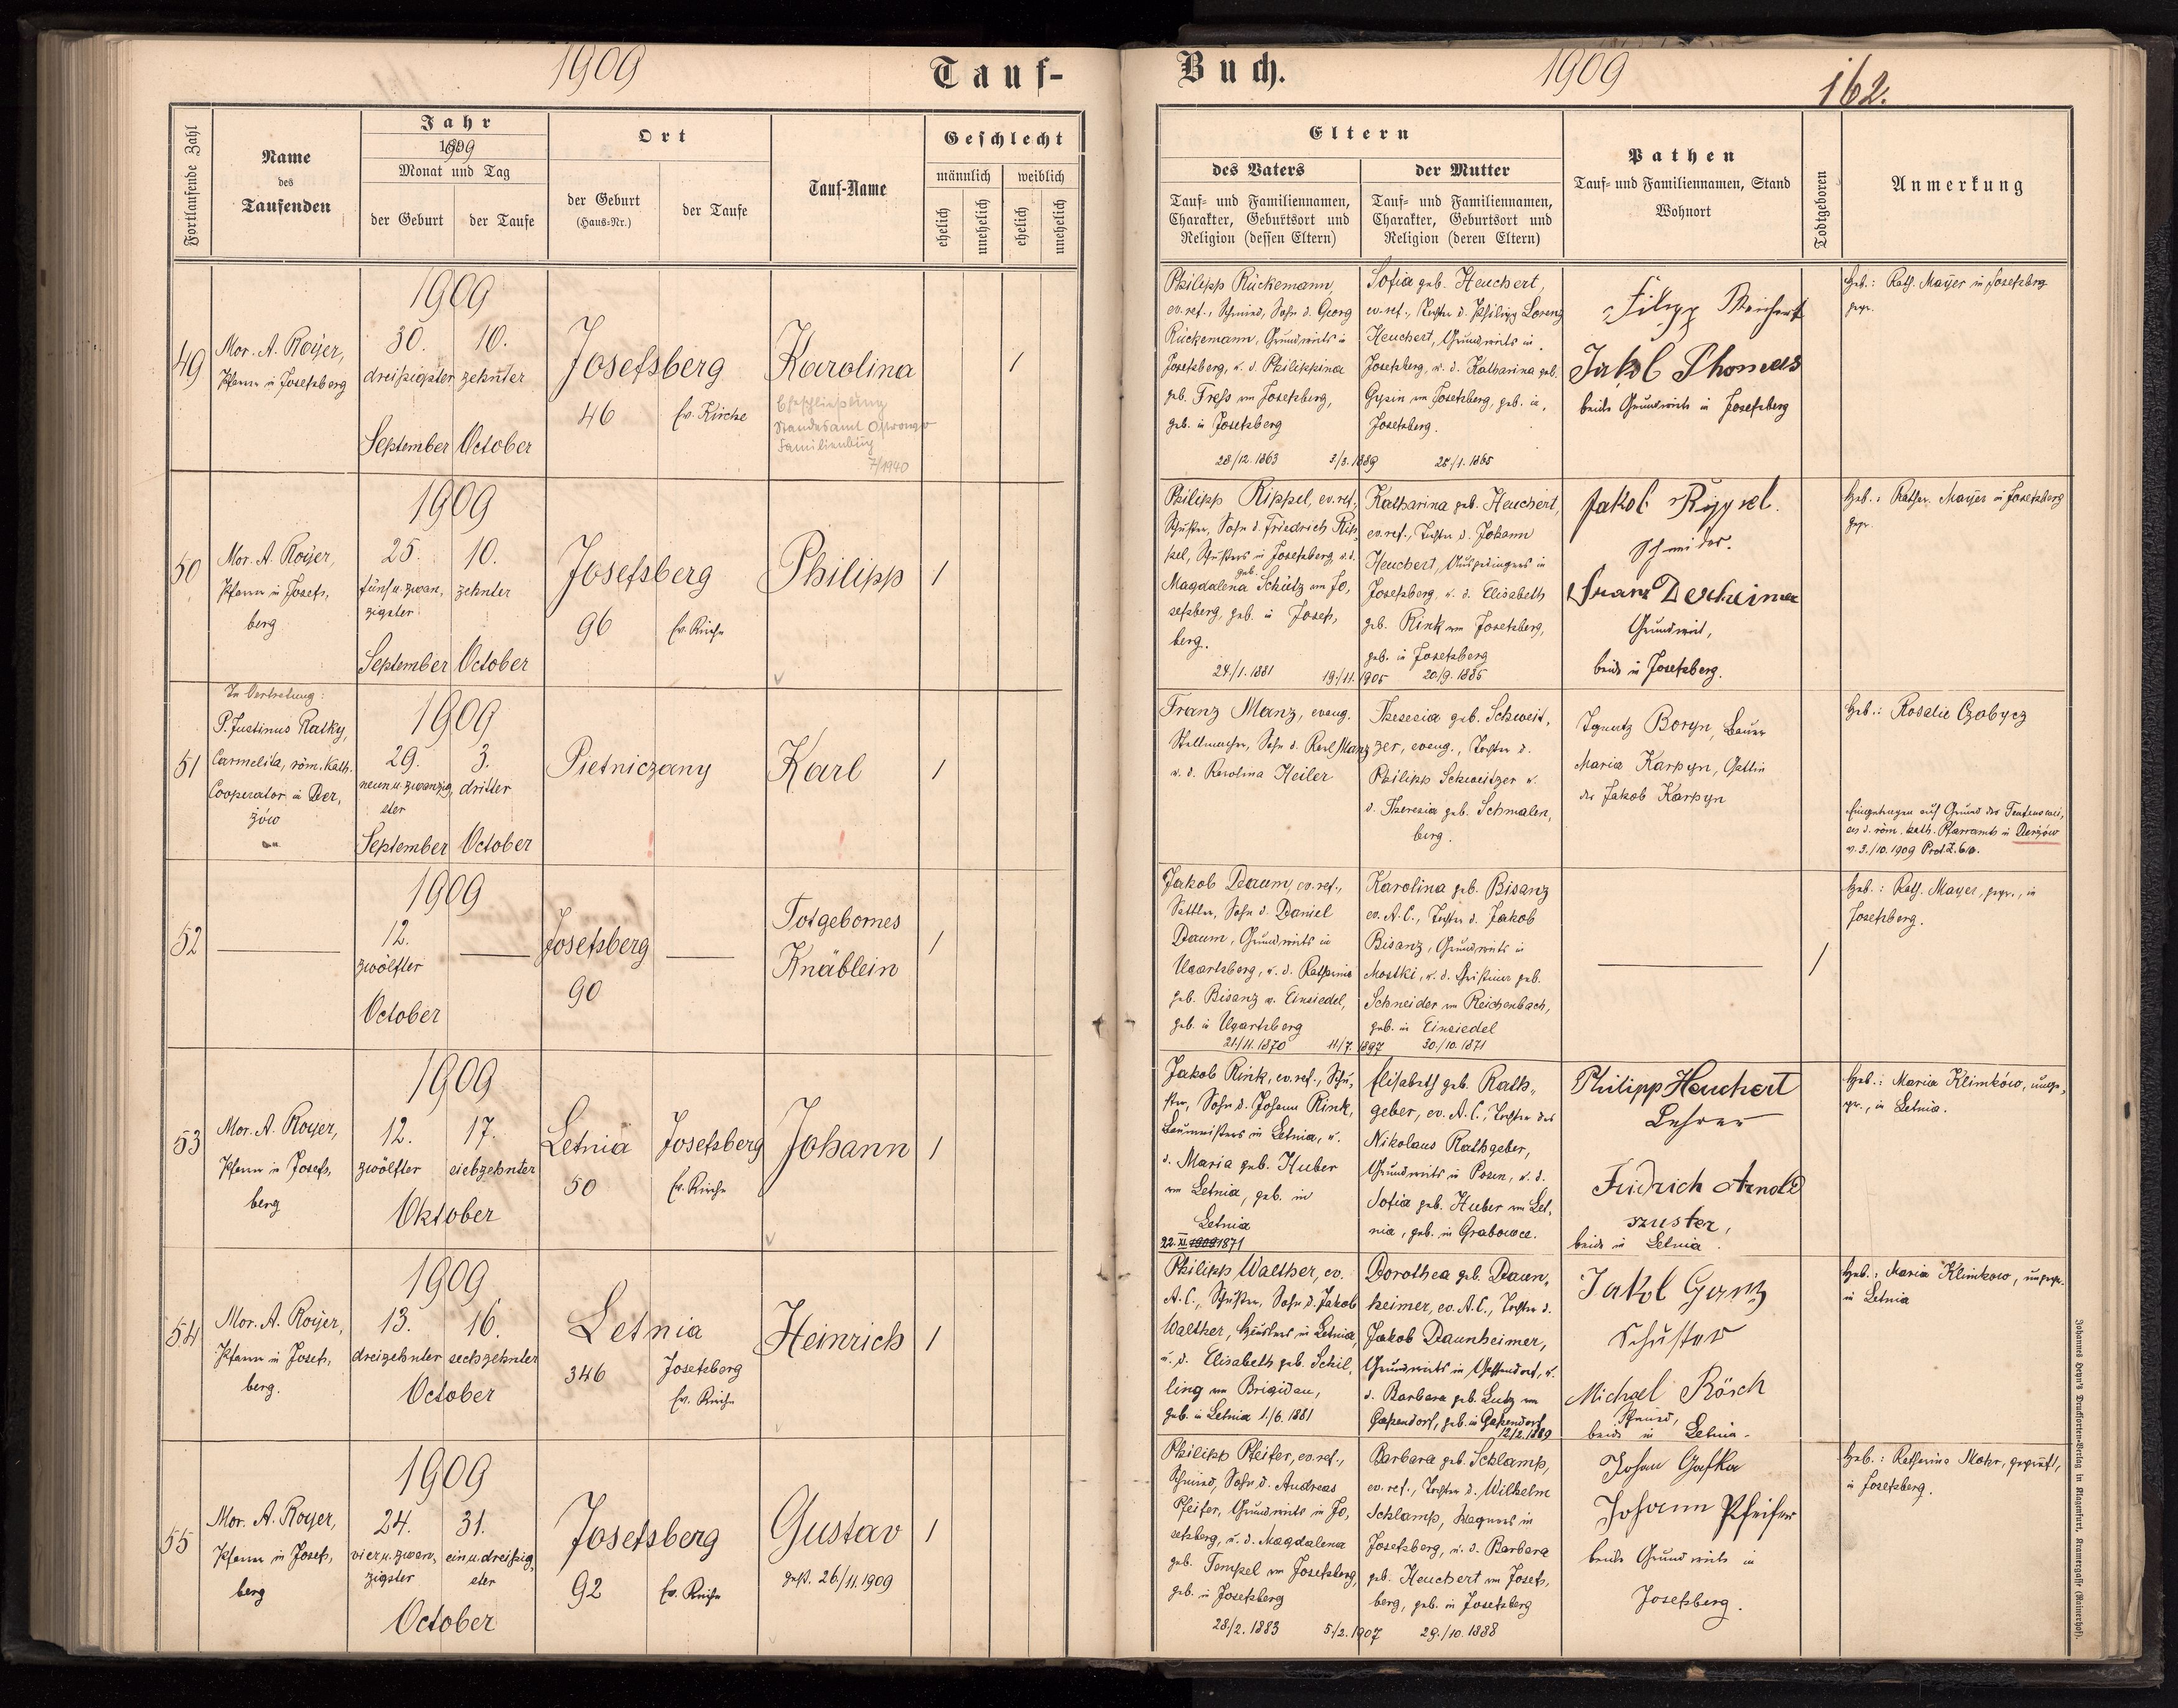 1909
Tauf-
Buch.
1909
162.
Fortlaufende Zahl
Name
des
Taufenden
Jahr
1909
Monat und Tag
der Geburt
der Taufe
Ort
der Geburt
(Haus-Nr.)
der Taufe
Tauf-Name
Geschlecht
männlich
weiblich
ehelich
unehelich
ehelich
unehelich
Eltern
des Vaters
Tauf- und Familiennamen,
Charakter, Geburtsort und
Religion (dessen Eltern)
der Mutter
Tauf- und Familiennamen,
Charakter, Geburtsort und
Religion (deren Eltern)
Pathen
Tauf- und Familiennamen, Stand
Wohnort
Todtgeboren
Anmerkung
49
Mor. A. Royer,
Pfarrer in Josefsberg
1909
30.
dreißigster
September
10.
zehnter
October
Josefsberg
46
Ev. Kirche
Karolina
Eheschließung
Standesamt
Familienbuch
7/1940
1
Philipp Rückemann,
ev. ref., Schmied, Sohn d. Georg
Rückemann, Grundwirts in
Josefsberg, u. d. Philippina
geb. Freß von Josefsberg,
geb. in Josefsberg
28/12. 1863
3/3. 1889
Sofia geb. Heuchert,
ev. ref., Tochter d. Philipp Lorenz
Heuchert, Grundwirts in
Josefsberg, u. d. Katharina geb.
Gysin von Josefsberg, geb. in
Josefsberg.
25/1. 1865
Filipp
Jakob Thomas
beide Grundwirte in Josefsberg
Heb.: Kath. Mayer in Josefsberg
gepr.
50
Mor. A. Royer,
Pfarrer in Josefs,
berg
1909
25.
fünf u. zwan,
zigster
September
10.
zehnter
October
Josefsberg
96
Ev. Kirche
Philipp
1
Philipp Rippel, ev. ref.,
Schuster, Sohn d. Friedrich Rip,
pel, Schusters in Josefsberg u. d.
Magdalena geb. Schütz von Jo,
sefsberg, geb. in Josefs,
berg.
24/1. 1881
19./11. 1905
Katharina geb. Heuchert,
ev. ref., Tochter d. Johann
Heuchert, Ausgedingers in
Josefsberg, u. d. Elisabeth
geb. Rink von Josefsberg,
geb. in Josefsberg
20/9. 1885
Jakob Rippel.
Schneider.
Franz Decheimer
Grundwirt,
beide in Josefsberg.
Heb.: Kathar. Mayer in Josefsberg
gepr.
51
In Vertretung:
P. Justinus Ratky,
Carmelita, röm. kath.
Cooperator in Der,
żów
1909
29.
neun u. zwanzig,
ster
September
3.
dritter
October
Pietniczany
Karl
1
Franz Manz, evang.
Stellmacher, Sohn d. Karl Manz
u. d. Karolina Heiler
Theresia geb. Schweit,
zer, evang., Tochter d.
Philipp Schweitzer u.
d. Theresia geb. Schmalen,
berg.
Ignatz Boryn, Bauer
Maria Karpyn, Gattin
des Jakob Karpyn
Heb.: Rosalie Czabycz
Eingetragen auf Grund des Taufauswei,
ses d. röm. kath. Pfarramts in Derżów
v. 3./10. 1909 Prot. Z. 610.
52
1909
12.
zwölfter
October
Josefsberg
90
Totgebornes
Knäblein
1
Jakob Daum, ev. ref.,
Sattler, Sohn d. Daniel
Daum, Grundwirts in
Ugartsberg, u. d. Katharina
geb. Bisanz v. Einsiedel,
geb. in Ugartsberg
21/11. 1870
11/7. 1897
Karolina geb. Bisanz
ev. A. C., Tochter d. Jakob
Bisanz, Grundwirts in
Mostki, u. d. Christina geb.
Schneider von Reichenbach,
geb. in Einsiedel
30./10. 1871
1
Heb.: Kath. Mayer, gepr., in
Josefsberg.
53
Mor. A. Royer,
Pfarrer in Josefs,
berg
1909
12.
zwölfter
17.
siebzehnter
Oktober
Letnia
50
Josefsberg
Ev. Kirche
Johann
1
Jakob Rink, ev. ref., Schu,
ster, Sohn d. Johann Rink,
Baumeisters in Letnia, u.
d. Maria geb. Huber
von Letnia, geb. in
Letnia
22. XI. 1909 1871
Elisabeth geb. Rath,
geber, ev. A. C., Tochter des
Nikolaus Rathgeber,
Grundwirts in Posen, u. d.
Sofia geb. Huber von Let,
nia, geb. in Grabowce.
Philipp Heuchert
Lehrer
Fridrich Arnold
szuster,
beide in Letnia.
Heb.: Maria Klimków, unge,
pr., in Letnia.
54
Mor. A. Royer,
Pfarrer in Josefs,
berg.
1909
13.
dreizehnter
16.
sechzehnter
October
Letnia
346
Josefsberg
Ev. Kirche
Heinrich
1
Philipp Walther, ev.
A. C., Schuster, Sohn d. Jakob
Walther, Häuslers in Letnia,
u. d. Elisabeth geb. Schil,
ling von Brigidau,
geb. in Letnia 1./6. 1881
Dorothea geb. Daun,
heimer, ev. A. C., Tochter d.
Jakob Daunheimer,
Grundwirts in Gassendorf, u.
d. Barbara geb. Lutz von
Gassendorf, geb. in Gassendorf
12/2. 1889
Jakob Ganz
Schuster
Michael Rösch
Schmied,
beide in Letnia.
Heb.: Maria Klimkow, ungepr.
in Letnia
55
Mor. A. Royer,
Pfarrer in Josefs,
berg
1909
24.
vier u. zwan,
zigster
31.
ein u. dreißig,
ster
October
Josefsberg
92
Ev. Kirche
Gustav
gest. 26./11. 1909
1
Philipp Pfeifer, ev. ref.,
Schmied, Sohn d. Andreas
Pfeifer, Grundwirts in Jo,
sefsberg, u. d. Magdalena
geb. Tempel von Josefsberg,
geb. in Josefsberg
28/2. 1883
5/2. 1907
Barbara geb. Schlamp,
ev. ref., Tochter d. Wilhelm
Schlamp, Wagners in
Josefsberg, u. d. Barbara
geb. Heuchert von Josefs,
berg, geb. in Josefsberg
29./10. 1888
Johan Gafka
Johann Pfeifer
beide Grundwirte in
Josefsberg.
Heb.: Katharina Mohr, geprüft,
in Josefsberg.
Johannes Heyn's Drucksorten-Verlag in Klagenfurt, Kramergasse (Rainerhof).